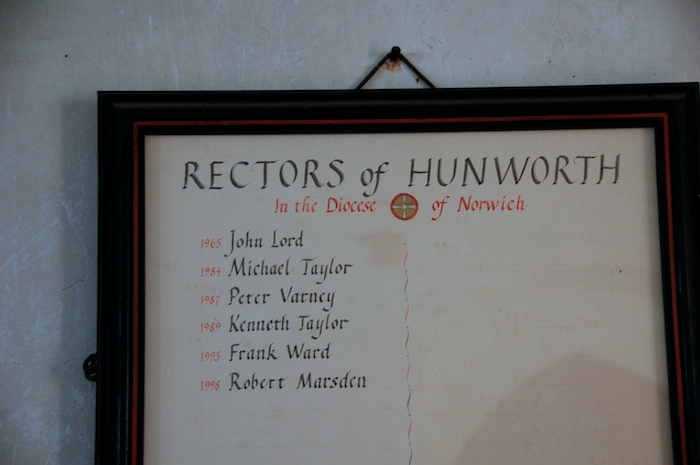 RECTORS of HUNWORTH
In the Diocese of Norwich
1965 John Lord
1984 Michael Taylor
1987 Peter Varney
1989 Kenneth Taylor
1995 Frank Ward
1998 Robert Marsden